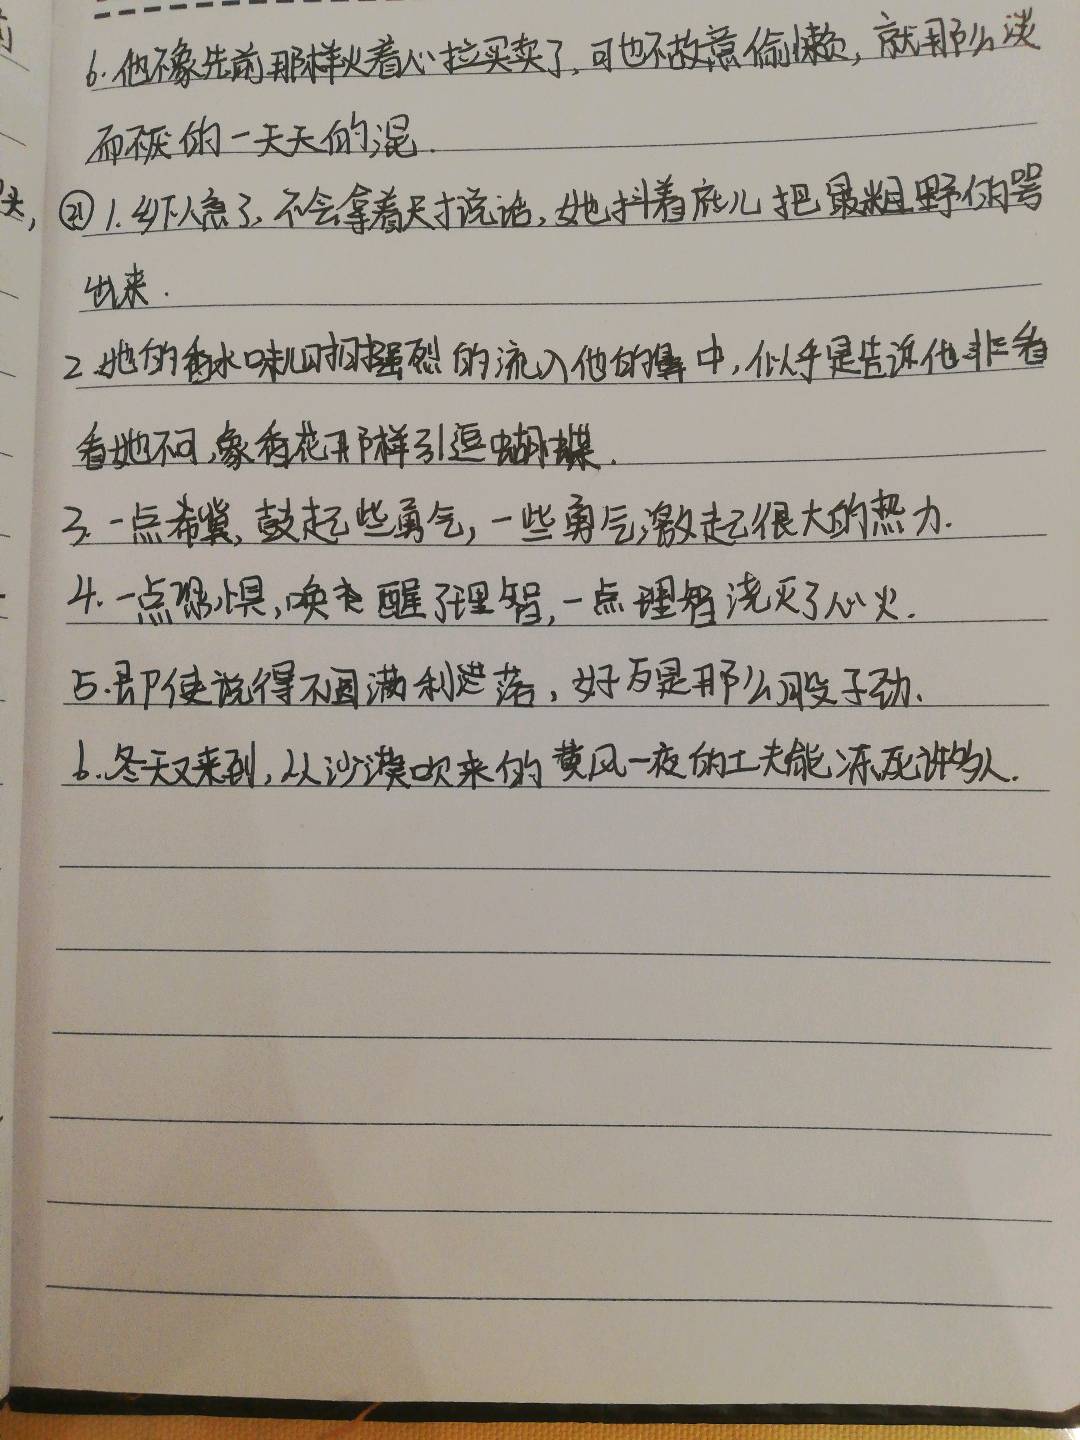 6.他不象先前那样火着心拉买卖了,可也不故意偷懒,就那么淡
而不厌的一天天的混.
㉑1.乡下人急了,不会拿着尺寸说话,她抖着底儿把最粗野的骂
出来.
2.她的香水味儿时时强烈的流入他的鼻中,似乎是告诉他非看
看她不可,象香花那样引逗蝴蝶.
3.一点希冀,鼓起些勇气,一些勇气激起很大的热力.
4.一点恐惧,唤醒了理智,一点理智浇灭了心火.
5.即使说得不圆满利落,好歹是那么股子劲.
6.冬天又来到,从沙漠吹来的黄风一夜的工夫能冻死许多人.